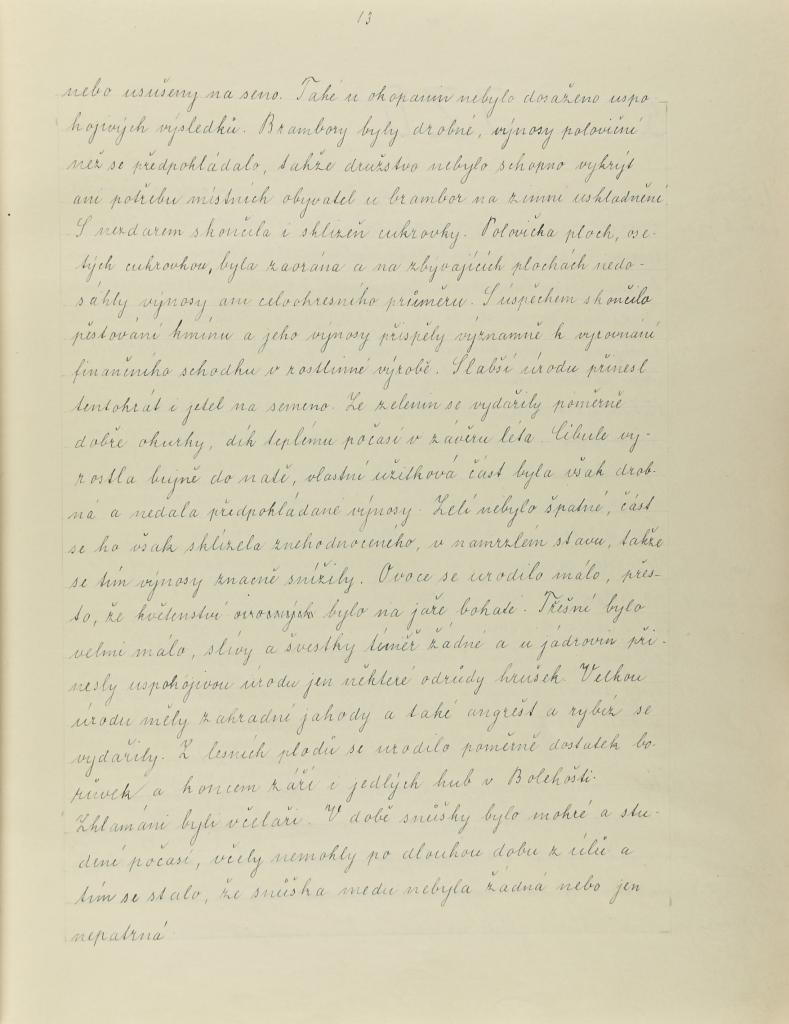 13
nebo usušeny na seno. Také u okopanin nebylo dosaženo uspo-
kojivých výsledků. Brambory byly drobné, výnosy poloviční
než se předpokládalo, takže družstvo nebylo schopno vykrýt
ani potřebu místních obyvatel u brambor na zimní uskladnění.
S nezdarem skončila i sklizeň cukrovky. Polovička ploch, ose-
tých cukrovkou, byla zaorána a na zbývajících plochách nedo-
sáhly výnosy ani celookresního průměru. S úspěchem skončilo
pěstování kmínu a jeho výnosy přispěly významně k vyrovnání
finančního schodku v rostlinné výrobě. Slabší úrodu přinesl
tentokrát i jetel na semeno. Ze zelenin se vydařily poměrně
dobře okurky, dík teplému počasí v závěru léta. Cibule vy-
rostla bujně do natě, vlastní užitková část byla však drob-
ná a nedala předpokládané výnosy. Zelí nebylo špatné, část
se ho však sklízela znehodnoceného, v namrzlém stavu, takže
se tím výnosy značně snížily. Ovoce se urodilo málo, přes-
to, že květenství ovocných bylo na jaře bohaté. Třešní bylo
velmi málo, slívy a švestky téměř žádné a u jádrovin při-
nesly uspokojivou úrodu jen některé odrůdy hrušek. Velkou
úrodu měly zahradní jahody a také angrešt a rybíz se
vydařily. Z lesních plodů se urodilo poměrně dostatek bo-
růvek a koncem září i jedlých hub v Bolehošti.
Zklamáni byli včelaři. V době snůšky bylo mokré a stu-
dené počasí, včely nemohly po dlouhou dobu z úlů a
tím se stalo, že snůška medu nebyla žádná nebo jen
nepatrná.